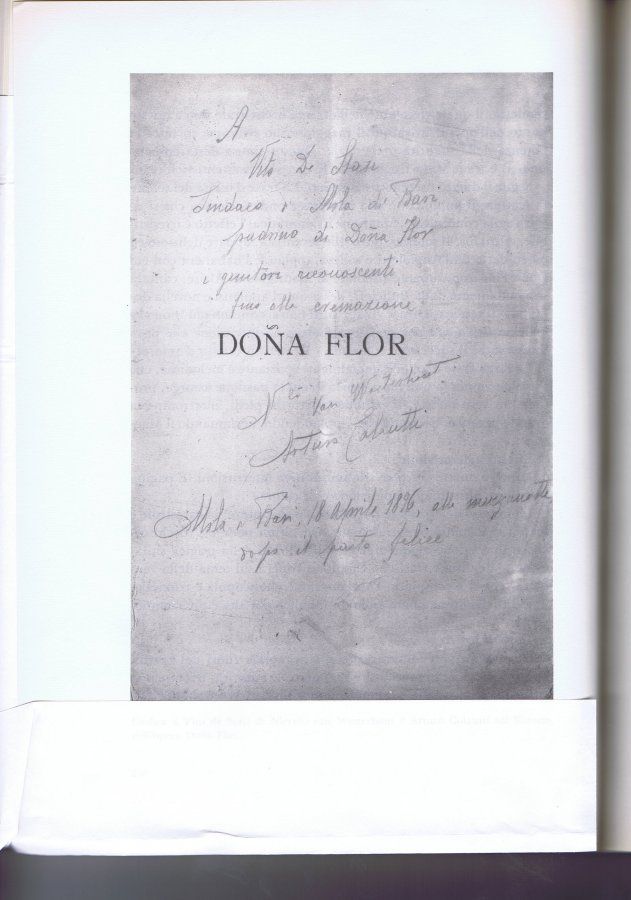 A
Vito De Stasi
Sindaco Mola di Bari
padrino di Doña Flor
i genitori riconoscenti
fino alla cremazione.
DOÑA FLOR
Van Westerhout
Arturo Colautti
Mola Bari, 18 Aprile 1896, alla mezzanotte
dopo il parto felice